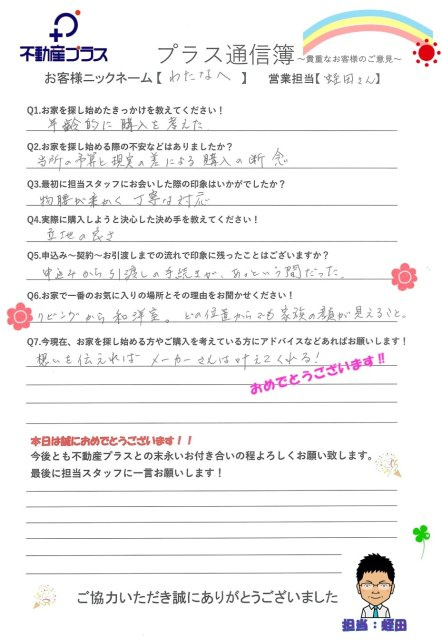 不動産プラス
プラス通信簿 ~貴重なお客様のご意見~
お客様ニックネーム【 わたなべ 】 営業担当【 蛭田さん 】
Q1.お家を探し始めたきっかけを教えてください!
年齢的に購入を考えた
Q2.お家を探し始める際の不安などはありましたか?
当所の予算と現実の差による購入の断念
Q3.最初に担当スタッフにお会いした際の印象はいかがでしたか?
物腰が柔かく丁寧な対応
Q4.実際に購入しようと決心した決め手を教えてください!
立地の良さ
Q5.申込み~契約~お引渡しまでの流れで印象に残ったことはございますか?
申込みから引渡しの手続きが、あっという間だった。
Q6.お家で一番のお気に入りの場所とその理由をお聞かせください!
リビングから和洋室。どの位置からでも家族の顔が見えること。
Q7.今現在、お家を探し始める方やご購入を考えている方にアドバイスなどあればお願いします!
想いを伝えればメーカーさんは叶えてくれる!
おめでとうございます!!
本日は誠におめでとうございます!!
今後とも不動産プラスとの末永いお付き合いの程よろしくお願い致します。
最後に担当スタッフに一言お願いします!
ご協力いただき誠にありがとうございました
担当:蛭田